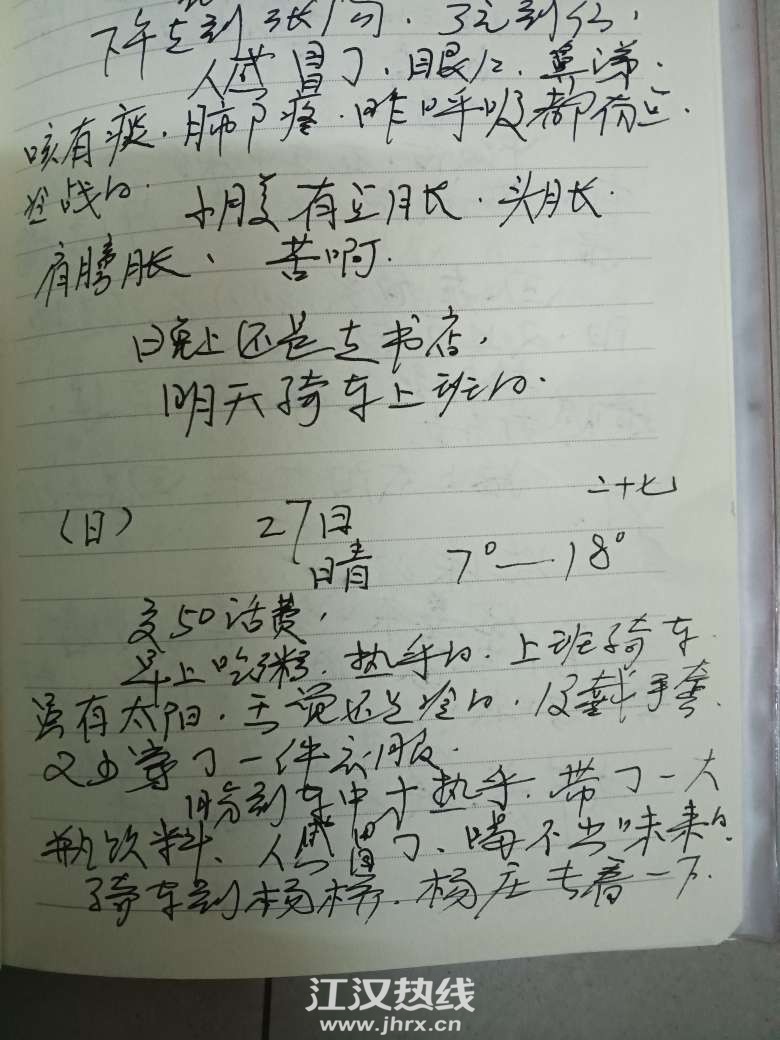 下午去到张门
人感冒了.眼红.鼻涕.
咳有痰.肺门疼.昨呼吸都有点
小腹有点胀.头胀.
肩膀胀、苦啊.
晚上还是去书店,
明天骑车上班的.
(日) 27日 二十七
晴 7°—18°
交50话费,
早上吃粥.热乎的.上班骑车.
虽有太阳.还是冷的.没戴手套.
又少穿了一件衣服.
热乎.带了一大
瓶饮料、人感冒了、喝不出味来的.
骑车到杨桥.杨庄去看一下.
江汉热线
www.jhrx.cn